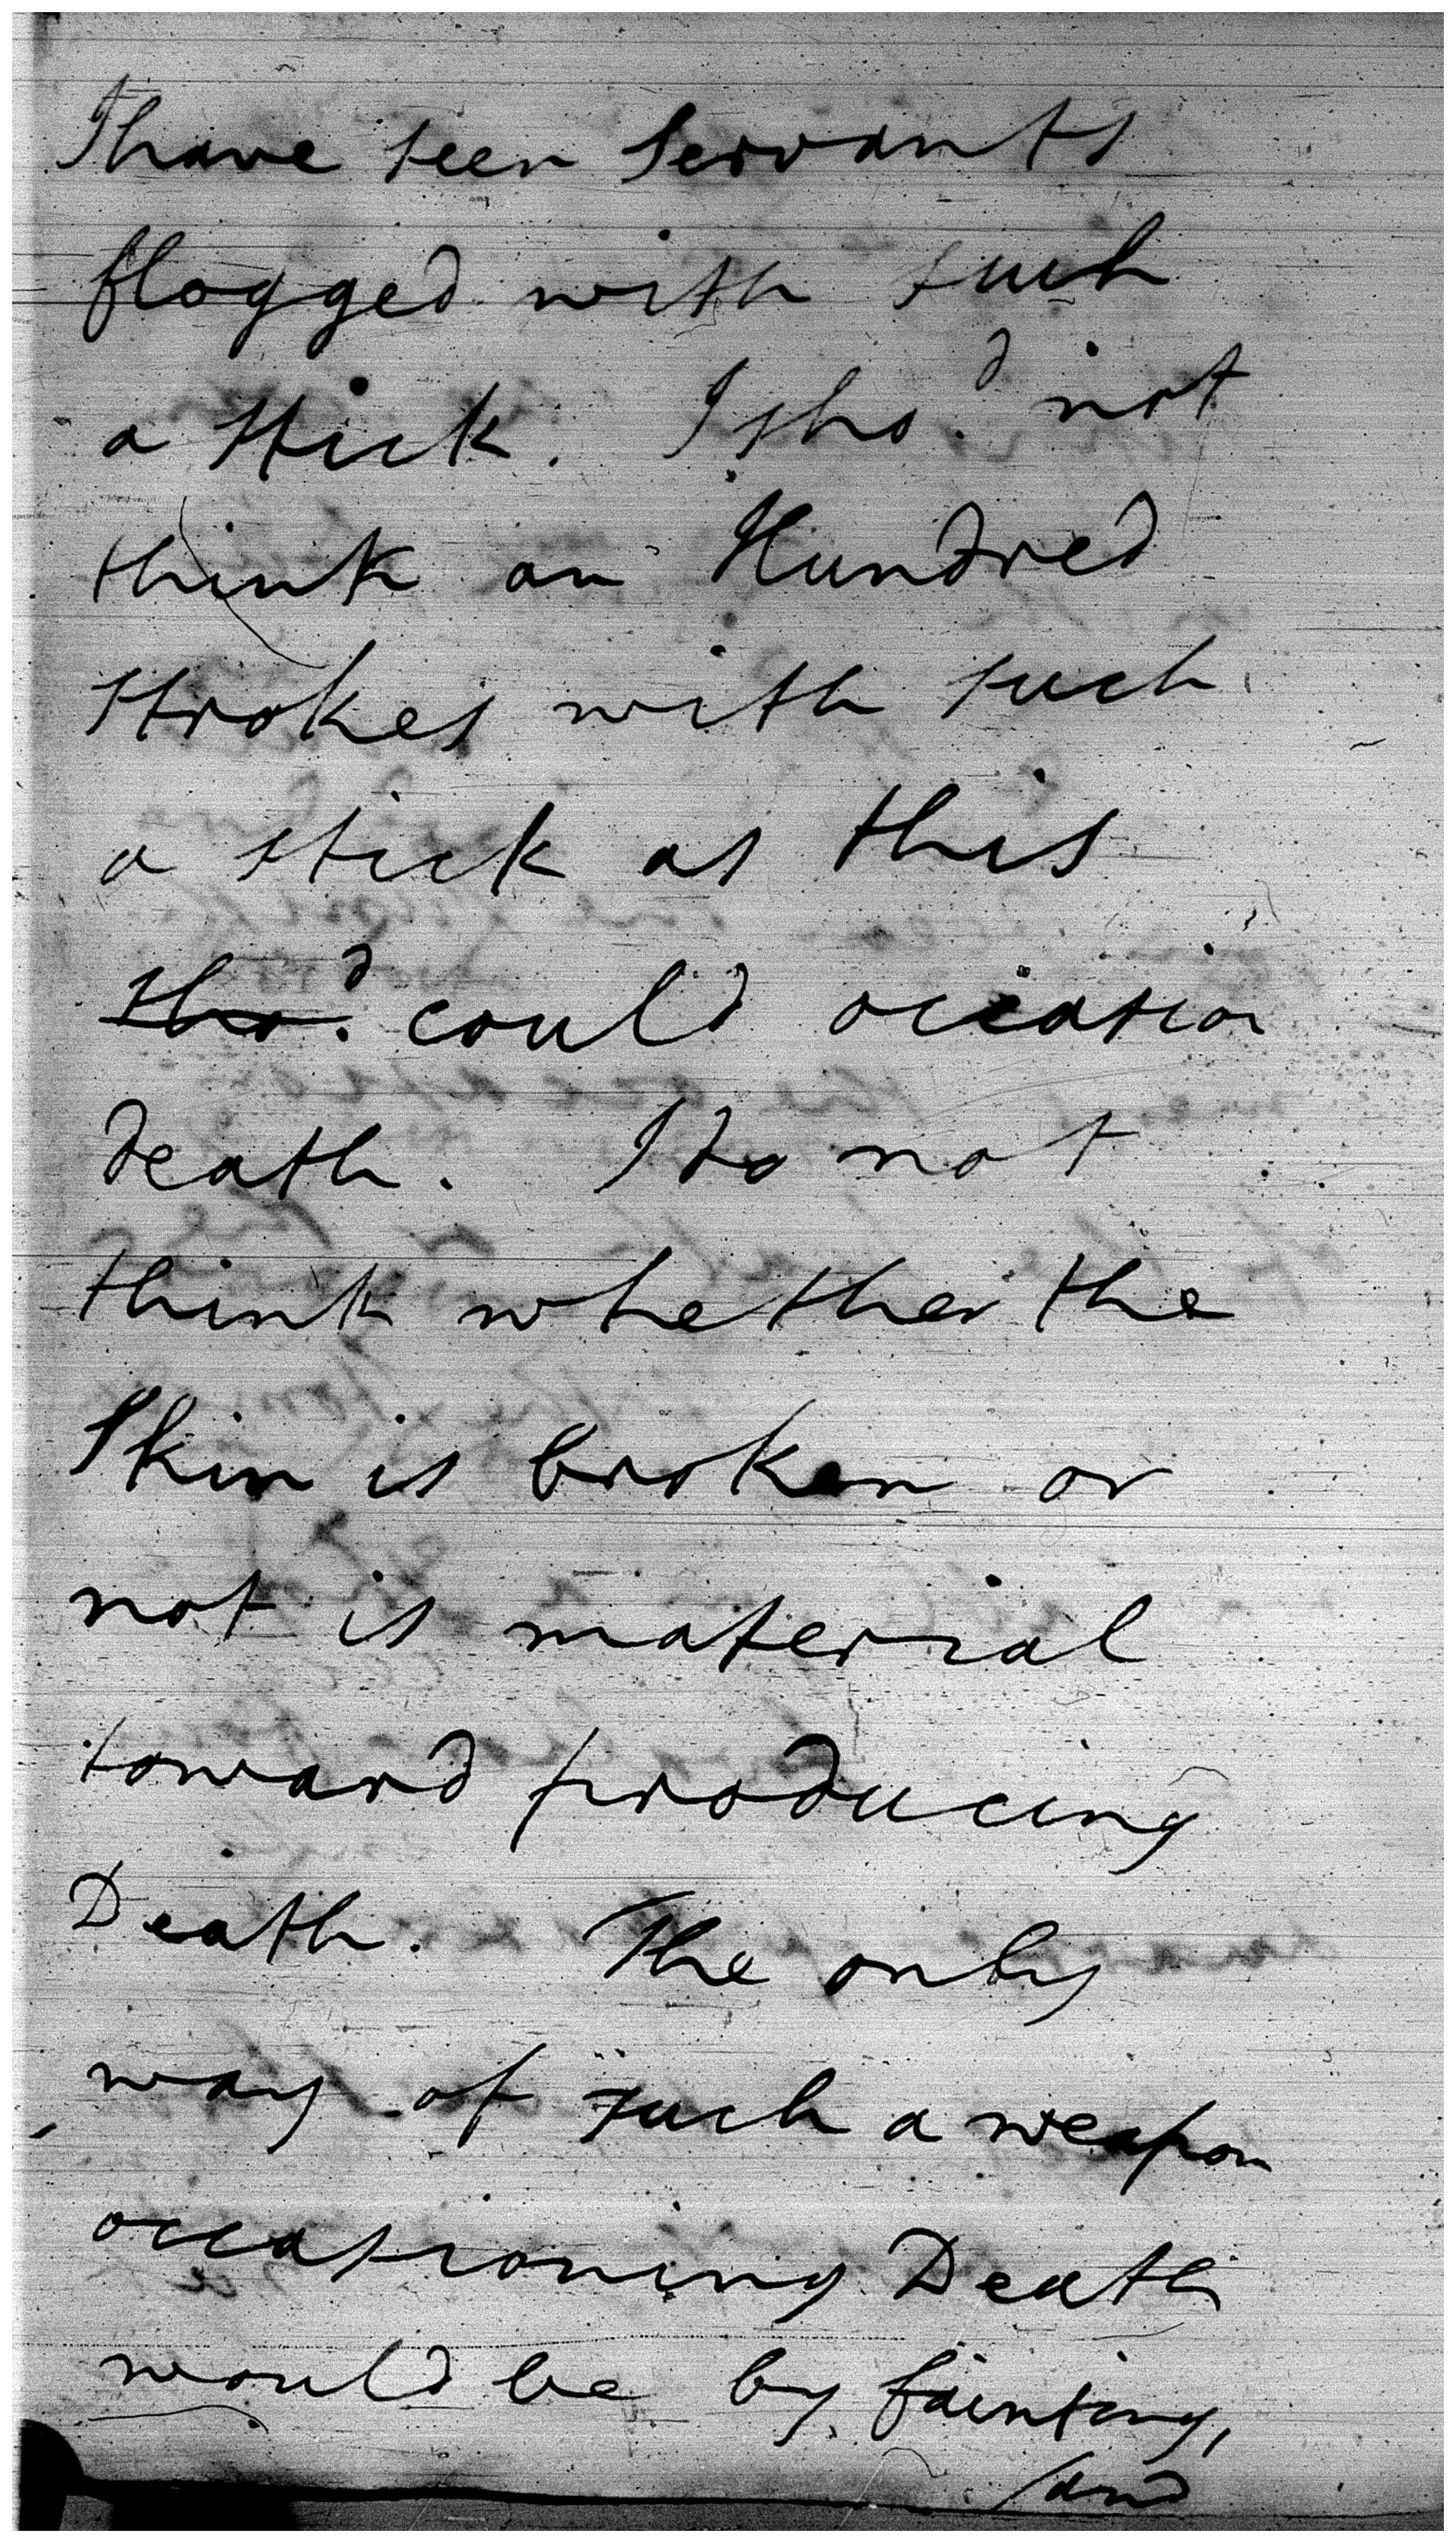 I have seen Servants
flogged with such
a stick. I sho.d not
think an Hundred
strokes with such
a stick as this
sho.d could occasion
death. I do not
think whether the
Skin is broken or
not is material
toward producing
Death. The only
way of such a weapon
occasioning Death
would be by fainting,
and